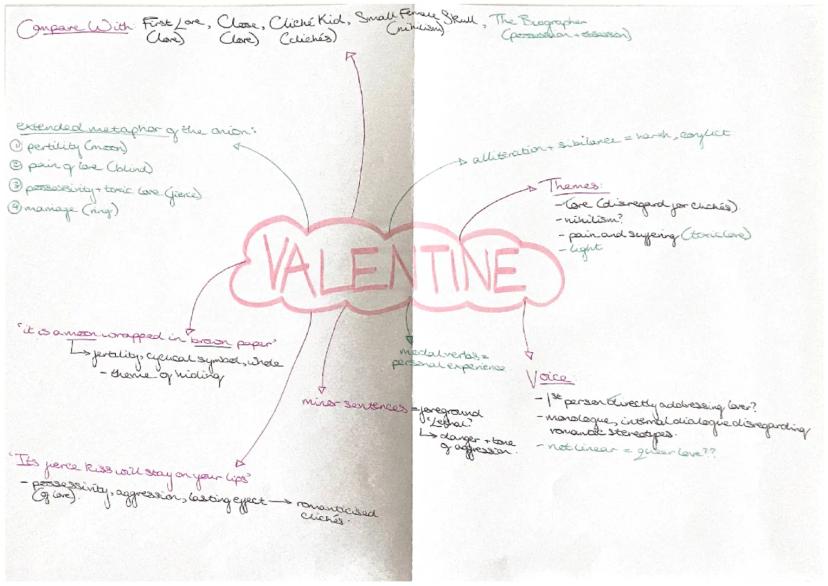 Compare With: First Love, Close, Cliché Kid, Small Female Skull, The Biographer
(love) (love) (clichés) (nihilism) (possession + obsession)
extended metaphor of the onion:
① fertility (moon)
② pain of love (blind)
③ possessivity + toxic love (fierce)
④ marriage (ring)
alliteration + sibilance = harsh, conflict
Themes:
- love (disregard for clichés)
- nihilism?
- pain and suffering (toxic love)
- light
VALENTINE
"it is a moon wrapped in brown paper"
fertility, cyclical symbol, whole
- theme of hiding
modal verbs =
personal experience
minor sentences = foreground
'Lethal'
danger + tone
of aggression.
Voice
- 1st person directly addressing lover?
- monologue, internal dialogue disregarding
romantic stereotypes.
- not linear = queer love??
"Its fierce kiss will stay on your lips"
- possessivity, aggression, lasting effect → romanticised
(of love). clichés.